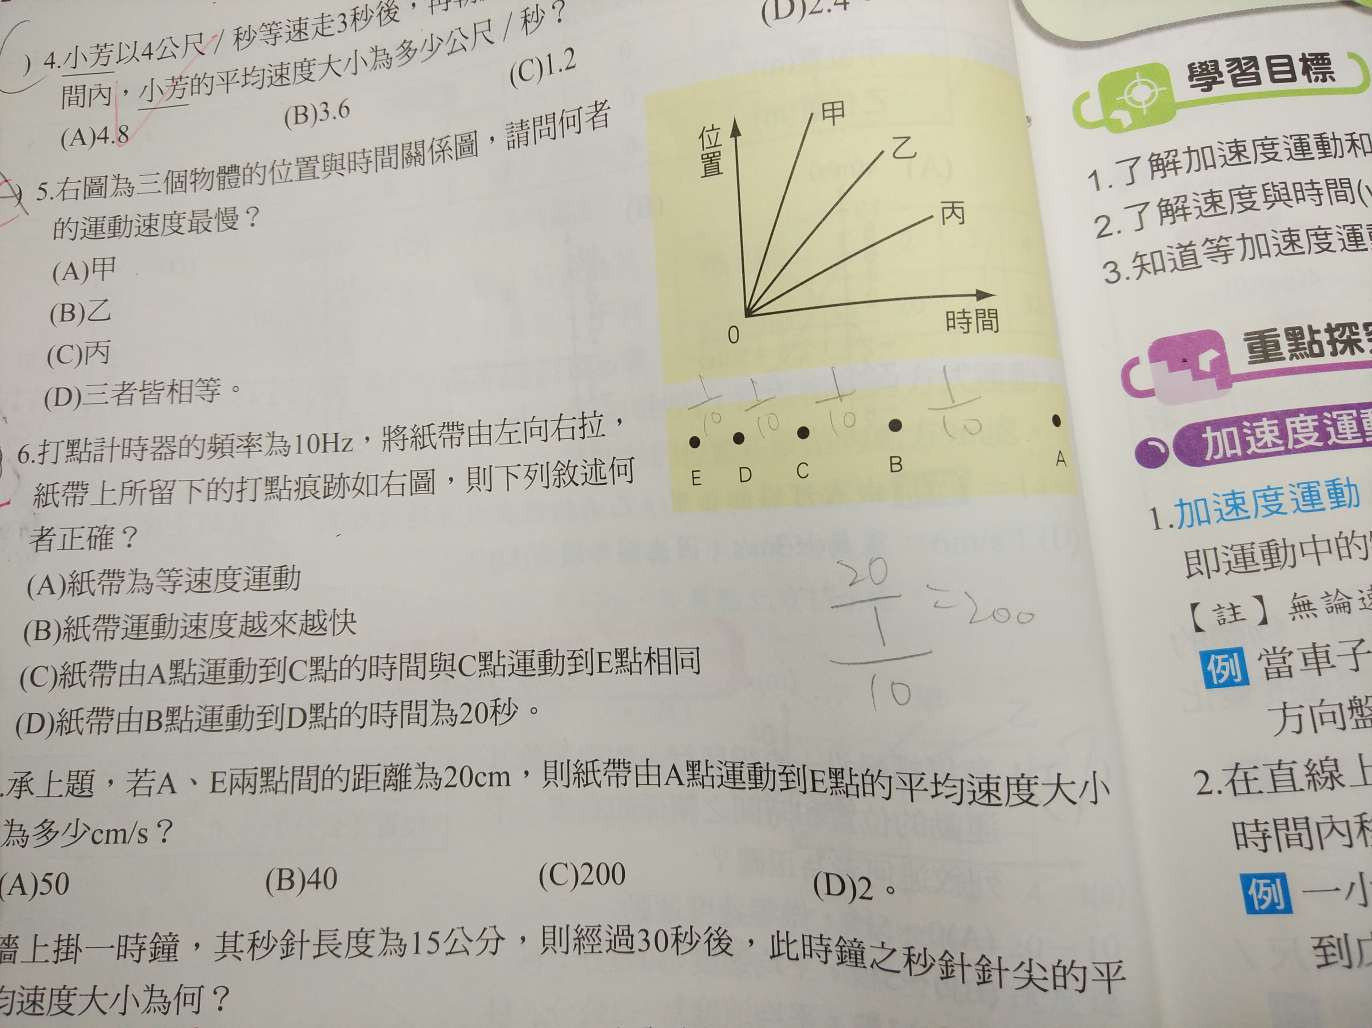 4.小芳以4公尺/秒等速走3秒後，再
間內，小芳的平均速度大小為多少公尺/秒？
(A)4.8
(B)3.6
(C)1.2
(D)2.4。
5.右圖為三個物體的位置與時間關係圖，請問何者
的運動速度最慢？
(A)甲
(B)乙
(C)丙
(D)三者皆相等。
位置
甲
乙
丙
0
時間
6.打點計時器的頻率為10Hz，將紙帶由左向右拉，
紙帶上所留下的打點痕跡如右圖，則下列敘述何
者正確？
(A)紙帶為等速度運動
(B)紙帶運動速度越來越快
(C)紙帶由A點運動到C點的時間與C點運動到E點相同
(D)紙帶由B點運動到D點的時間為20秒。
1/10 1/10 1/10 1/10
E D C B A
20/1/10 = 200
.承上題，若A、E兩點間的距離為20cm，則紙帶由A點運動到E點的平均速度大小
為多少cm/s？
(A)50 (B)40 (C)200 (D)2。
牆上掛一時鐘，其秒針長度為15公分，則經過30秒後，此時鐘之秒針針尖的平
均速度大小為何？
學習目標
1.了解加速度運動和
2.了解速度與時間(v
3.知道等加速度運動
重點探究
加速度運動
1.加速度運動
即運動中的
【註】無論
例 當車子
方向盤
2.在直線上
時間內
例 一小
到